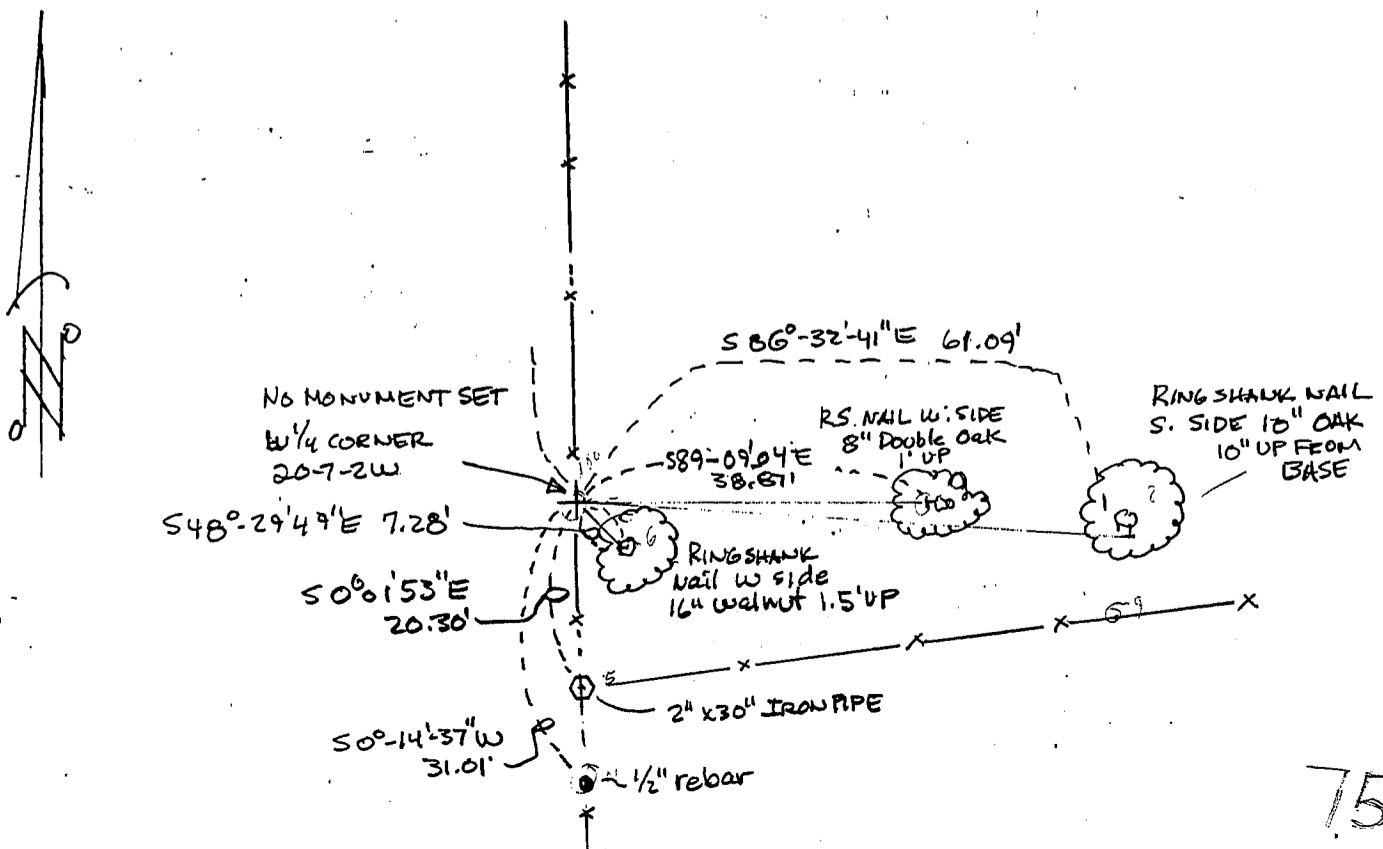 N
S 86°-32'-41"E 61.09'
NO MONUMENT SET
W 1/4 CORNER
20-7-2W
R.S. NAIL W. SIDE
8" Double Oak
1' UP
RINGSHANK NAIL
S. SIDE 10" OAK
10" UP FROM
BASE
S89-09'04"E
38.87'
S48°-29'49"E 7.28'
RINGSHANK
Nail W side
16" walnut 1.5' UP
S0°01'53"E
20.30'
2" x 30" IRON PIPE
S0°-14'-37"W
31.01'
1/2" rebar
75